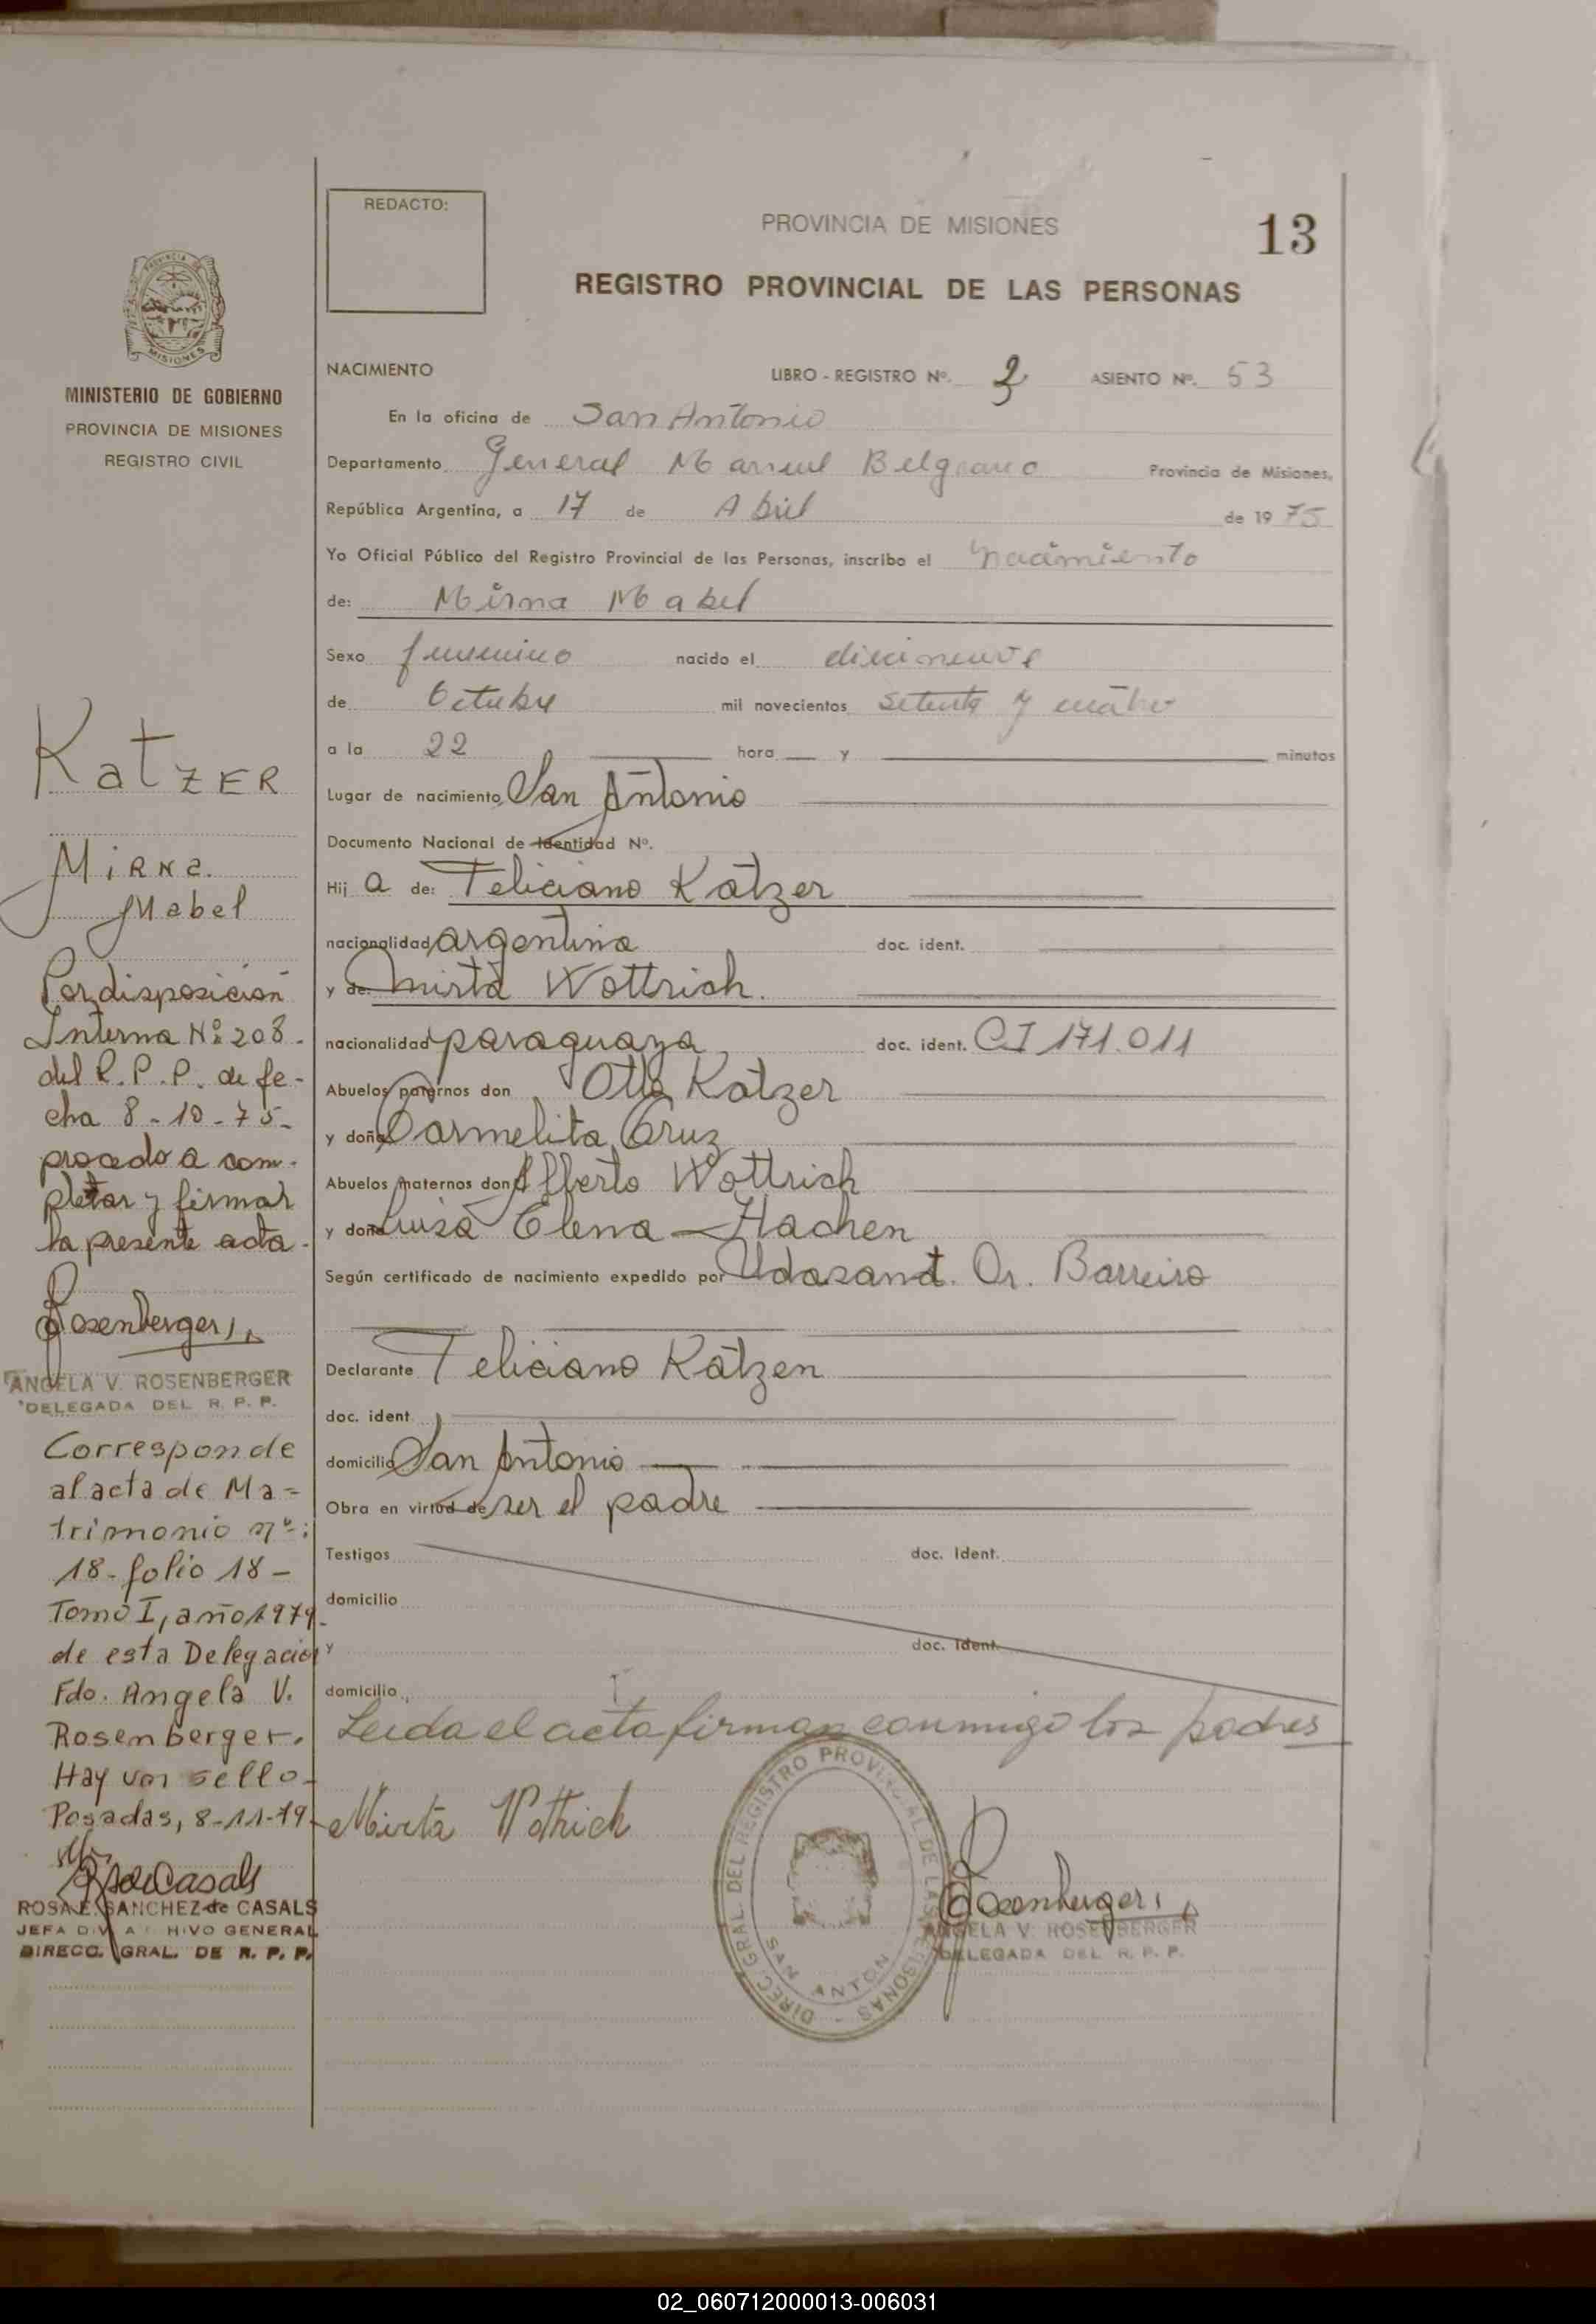 REDACTO:
PROVINCIA DE MISIONES
13
REGISTRO PROVINCIAL DE LAS PERSONAS
MISIONES
MINISTERIO DE GOBIERNO
PROVINCIA DE MISIONES
REGISTRO CIVIL
Katzer
Mirna
Mabel
Por disposición
Interna Nº 208-
del R.P.P. de fe-
cha 8-10-75-
procedo a com-
pletar y firmar
la presente acta-
Rosenberger
ANGELA V. ROSENBERGER
DELEGADA DEL R. P. P.
Corresponde
al acta de Ma=
trimonio nº:
18-folio 18-
Tomo I, año 1979-
de esta Delegación
Fdo. Angela V.
Rosenberger.
Hay un sello-
Posadas, 8-11-79-
RSdeCasals
ROSA E. SANCHEZ de CASALS
JEFA DIV. ARCHIVO GENERAL
DIRECC. GRAL. DE R. P. P.
NACIMIENTO LIBRO - REGISTRO Nº. ASIENTO Nº. 53
En la oficina de San Antonio
Departamento General Manuel Belgrano Provincia de Misiones,
República Argentina, a 17 de Abril de 1975
Yo Oficial Público del Registro Provincial de las Personas, inscribo el nacimiento
de: Mirna Mabel
Sexo femenino nacido el diecinueve
de Octubre mil novecientos setenta y cuatro
a la 22 hora y minutos
Lugar de nacimiento San Antonio
Documento Nacional de Identidad Nº.
Hij a de: Feliciano Katzer
nacionalidad argentina doc. ident.
y de: Mirta Wottrich.
nacionalidad paraguaya doc. ident. CI 171.011
Abuelos paternos don Otto Katzer
y doña Carmelita Cruz
Abuelos maternos don Alberto Wottrich
y doña Luisa Elena Hachen
Según certificado de nacimiento expedido por Dr. Barreiro
Declarante Feliciano Katzer
doc. ident.
domicilio San Antonio
Obra en virtud de ser el padre
Testigos doc. Ident.
domicilio
y doc. Ident.
domicilio
Leida el acta firman conmigo los padres
Mirta Wottrich
DIREC. GRAL. DEL REGISTRO PROVINCIAL DE LAS PERSONAS
SAN ANTONIO
Rosenberger
ANGELA V. ROSENBERGER
DELEGADA DEL R. P. P.
02_060712000013-006031